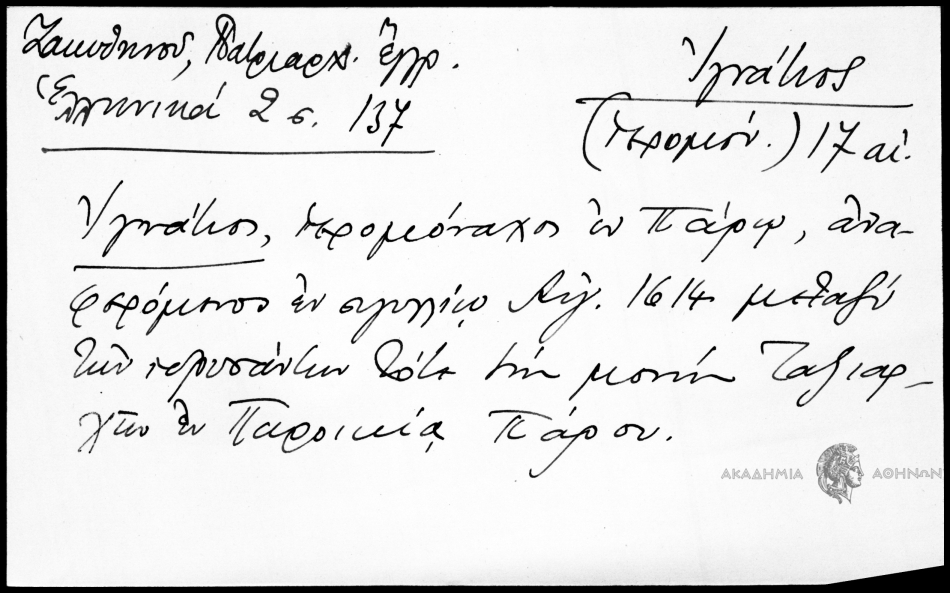 Ζακυθηνού, Πατριαρχ. ἔγγρ.
Ἑλληνικά 2 σ. 137
Ἰγνάτιος
(ἱερομόν.) 17 αἰ.
Ἰγνάτιος, ἱερομόναχος ἐν Πάρῳ, ἀνα-
φερόμενος ἐν σιγιλλίῳ Αὐγ. 1614 μεταξύ
τῶν ἱδρυσάντων τότε τήν μονήν Ταξιαρ-
χῶν ἐν Παροικίᾳ Πάρου.
ΑΚΑΔΗΜΙΑ ΑΘΗΝΩΝ